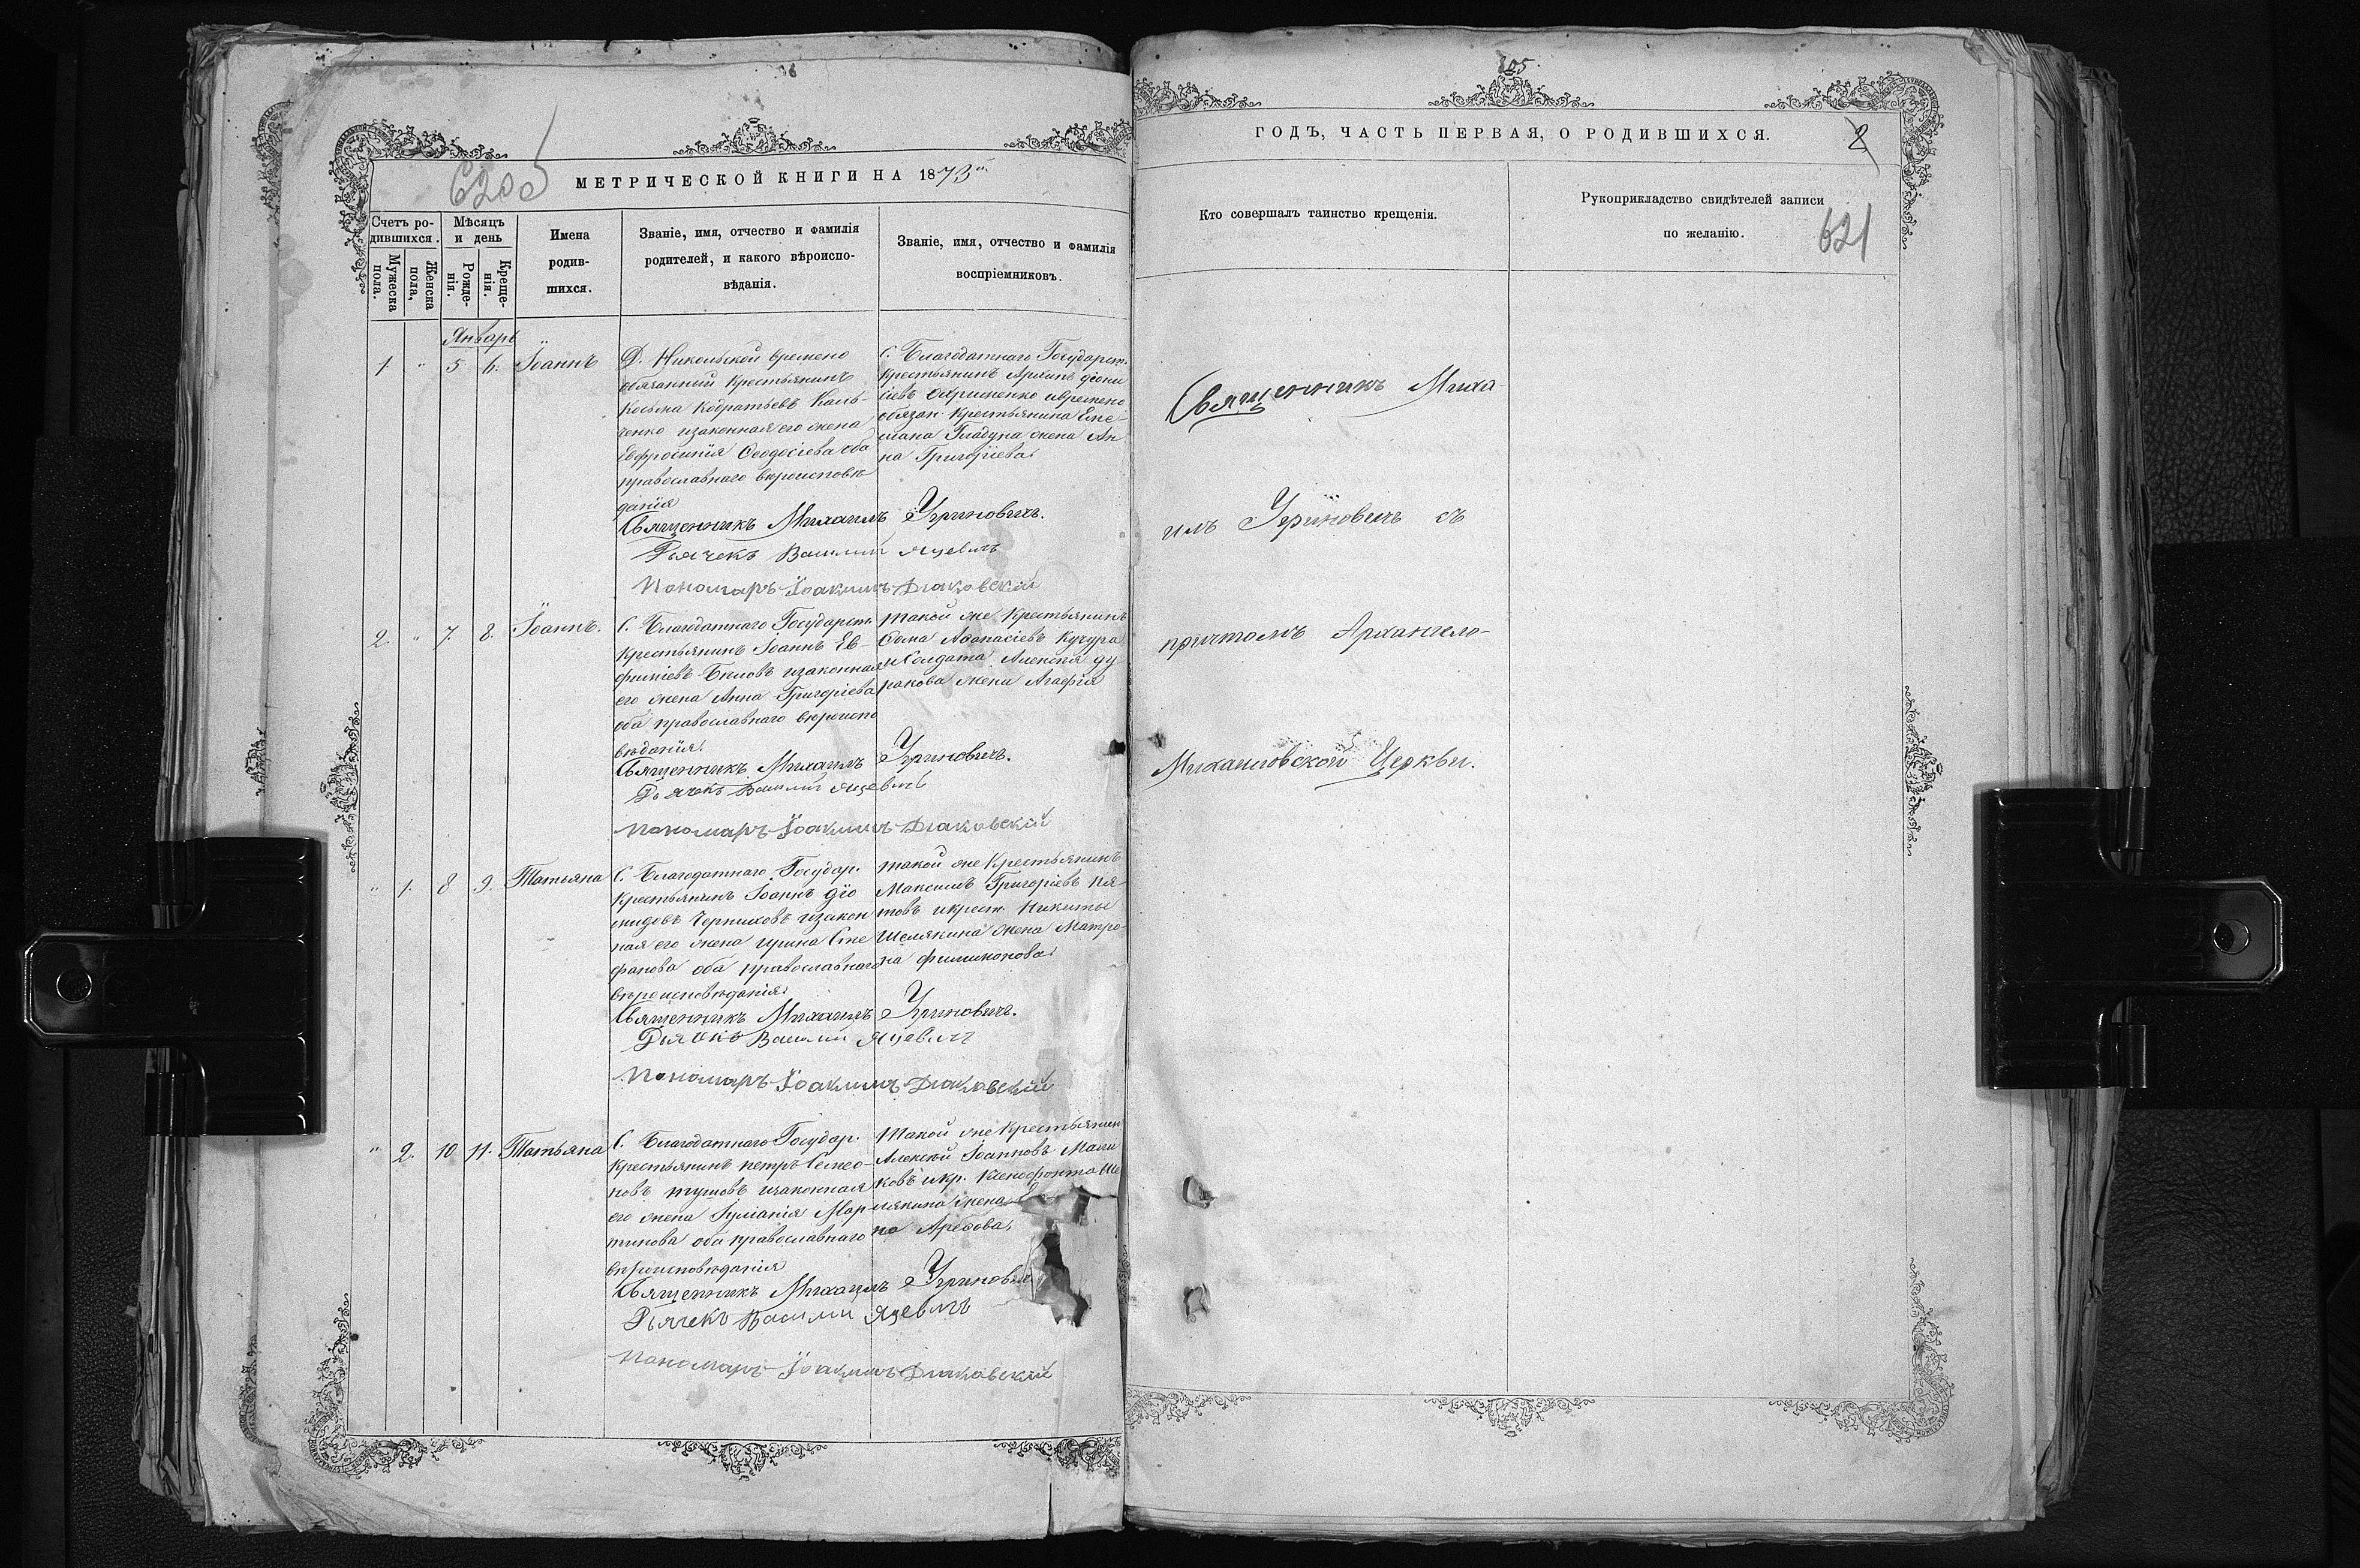 620об
МЕТРИЧЕСКОЙ КНИГИ НА 1873й
Счетъ ро-
дившихся.
Мужеска
пола.
Женска
пола,
Мѣсяцъ
и день
Рожде-
нія.
Креще-
нія.
Имена
родив-
шихся.
Званіе, имя, отчество и фамилія
родителей, и какого вѣроиспо-
вѣданія.
Званіе, имя, отчество и фамилія
воспріемниковъ.
Январь
1. " 5 6. Іоаннъ
Д. Никольской времено
обязанный Крестьянинъ
Косьма Кодратьевъ Каль-
ченко изаконная его жена
Евфросинія Ѳеодосіева оба
православнаго вѣроисповѣ
данія
С. Благодатнаго Государст.
Крестьянинъ Архипъ Діони
сіевъ Охрименко ивремено
обязан. Крестьянина Еме
лiана Гладуна жена Ан
на Григоріева
Священникъ Михаилъ Угриновичъ.
Дьячекъ Василий Яцевичъ
Пономаръ Іоакимъ Дьяковскій
2. " 7. 8. Іоаннъ.
С. Благодатнаго Государст.
Крестьянинъ Іоаннъ Ев-
фиміевъ Бѣловъ изаконная
его жена Анна Григоріева
оба православнаго вѣроиспо
вѣданія.
такой же Крестьянинъ
Ѳома Аѳанасіевъ Кучура
и Солдата Алексея Ду
ракова жена Агафія
Священникъ Михаилъ Угриновичъ.
Дьячекъ Василий Яцевичъ
Пономаръ Іоакимъ Дьяковскій
" 1. 8 9. Татьяна
С. Благодатнаго Государ.
Крестьянинъ Іоаннъ Діо
мидовъ Черниховъ изакон
ная его жена Ирина Сте
фанова оба православнаго
вѣроисповѣданія
такой же Крестьянинъ
Максимъ Григоріевъ Пя-
товъ икрест. Никиты
Шемякина жена Матро-
на Филимонова
Священникъ Михаилъ Угриновичъ.
Дьячекъ Василий Яцевичъ
Пономаръ Іоакимъ Дьяковскій
" 2. 10 11. Татьяна
С. Благодатнаго Государ.
Крестьянинъ Петръ Симео-
новъ изаконная
его жена Іуліанія Мар-
тинова оба православнаго
вѣроисповѣданія
Такой же Крестьянин
Алексей Іоанновъ Мали
ковъ икр. Ксенофонта Ше
мякина жена
на
Священникъ Михаилъ Угринович
Дьячекъ Василий Яцевичъ
Пономаръ Іоакимъ Дьяковскій
ГОДЪ, ЧАСТЬ ПЕРВАЯ, О РОДИВШИХСЯ.
2
621
Кто совершалъ таинство крещенія.
Рукоприкладство свидѣтелей записи
по желанію.
Священникъ Миха-
илъ Угриновичъ съ
причтомъ Архангело-
Михаиловской Церкви.